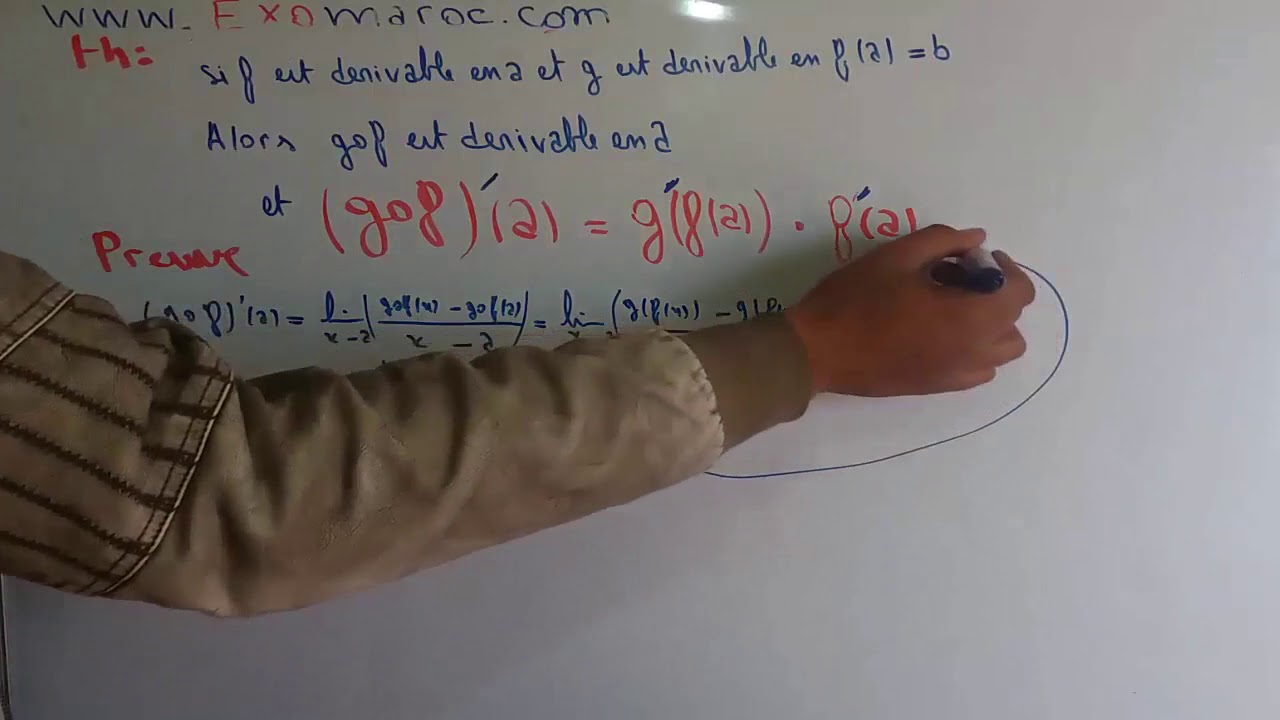 www.Exomaroc.com
th: si f est derivable en a et g est derivable en f(a) = b
Alors gof est derivable en a
et (gof)'(a) = g'(f(a)) . f'(a)
Preuve
(gof)'(a) = lim x→a (gof(x) - gof(a) / x - a) = lim (g(f(x)) - g(f(